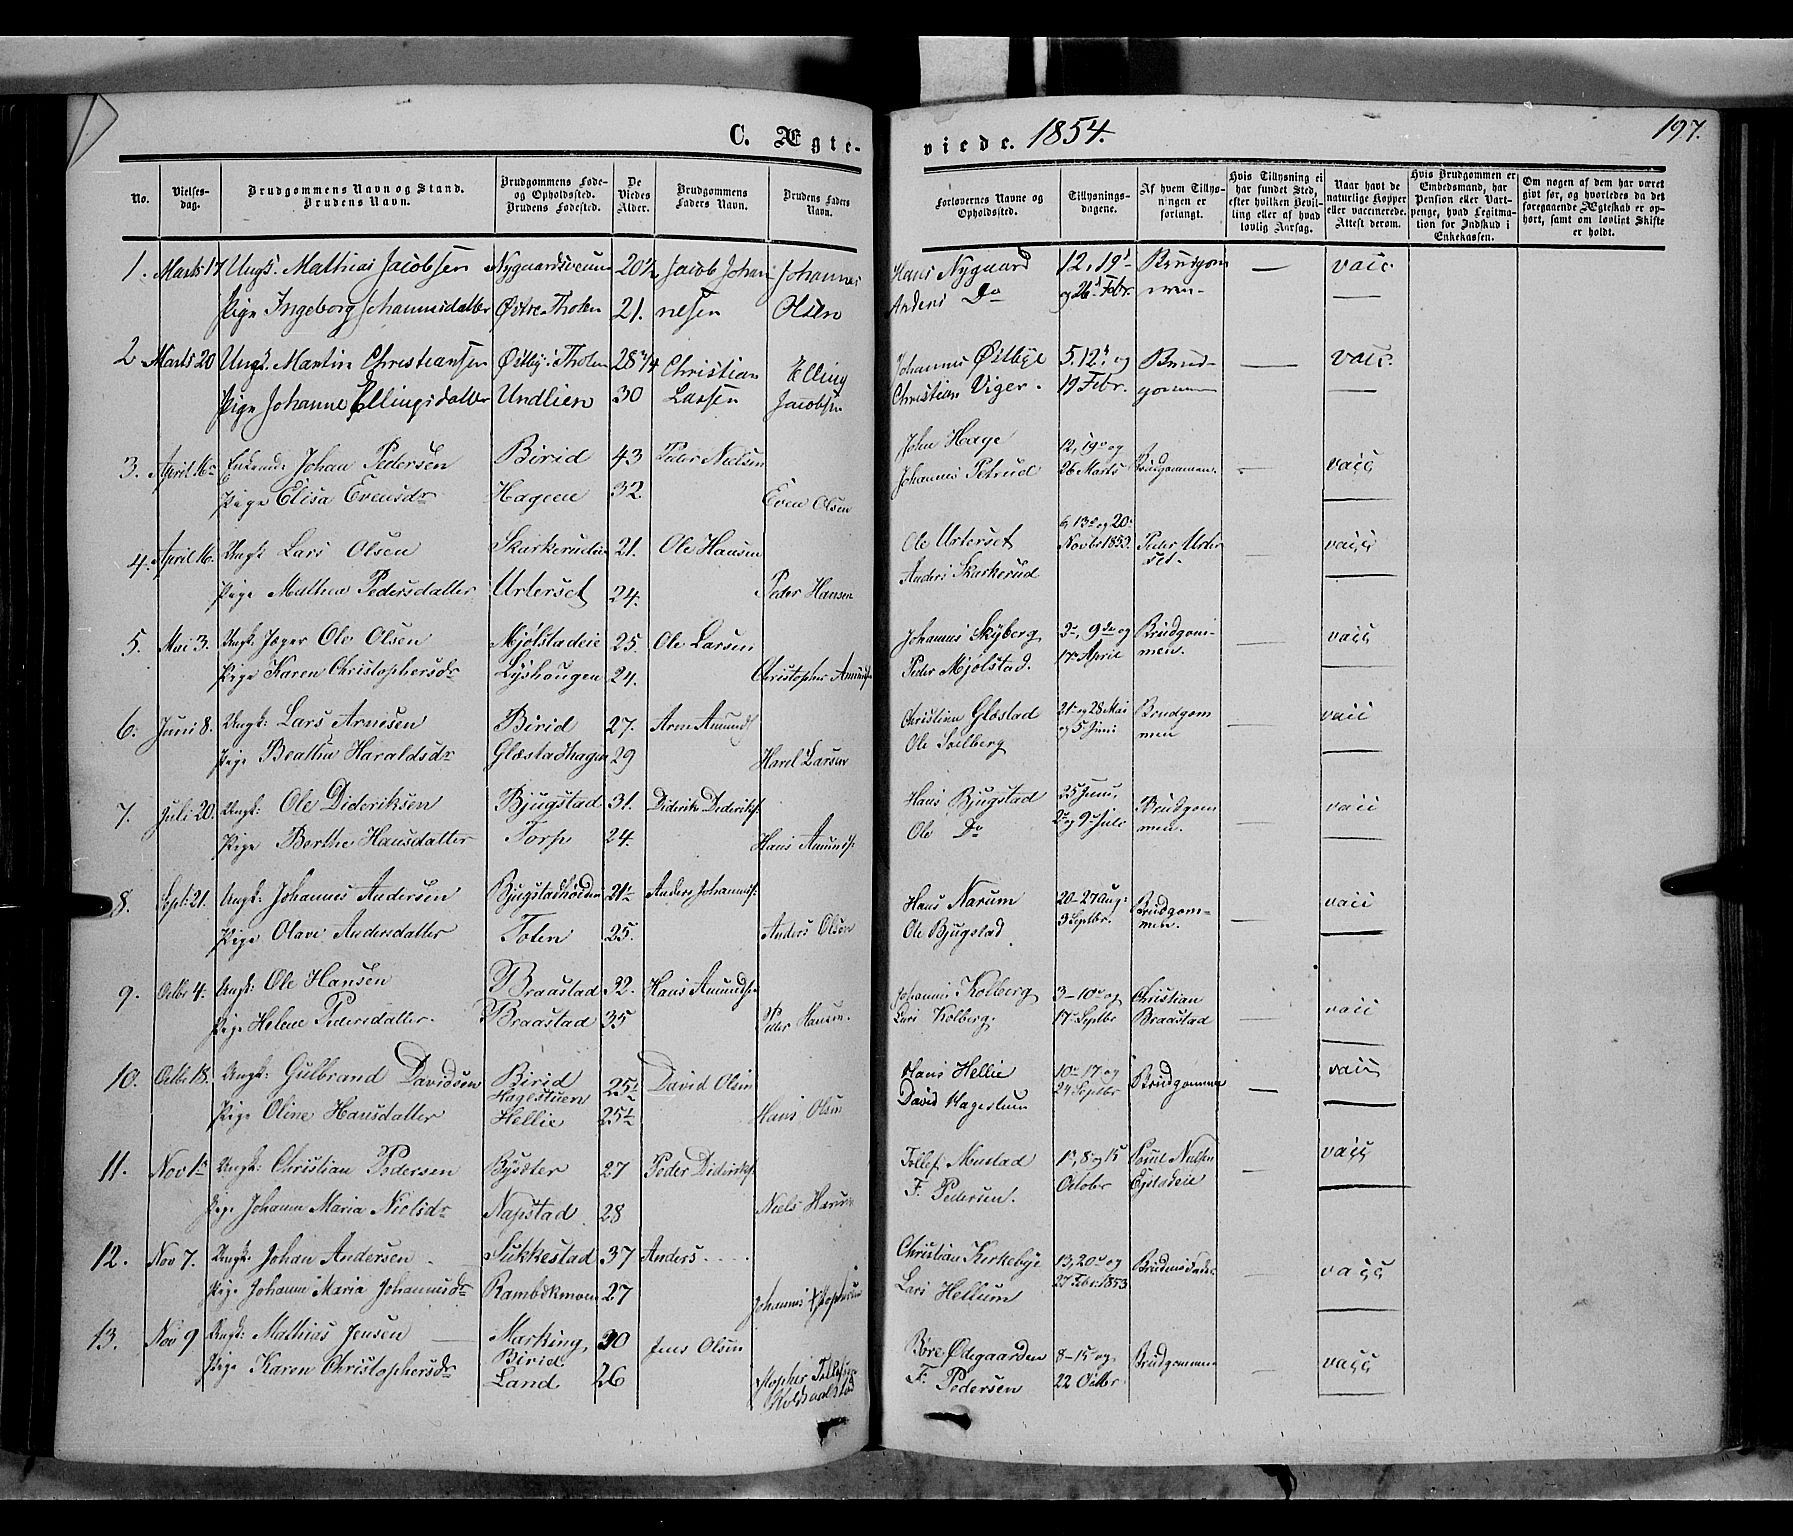 C. Ægte-
viede. 1854.
197.
No.
Vielses-
dag.
Brudgommens Navn og Stand.
Brudens Navn.
Brudgommens Føde-
og Opholdssted.
Brudens Fødested.
De
Viedes
Alder.
Brudgommens
Faders Navn.
Brudens Faders
Navn.
Forlovernes Navne og
Opholdssted.
Tillysnings-
dagene.
Af hvem Tillys-
ningen er
forlangt.
Hvis Tillysning ei
har fundet Sted,
efter hvilken Bevil-
ling eller af hvad
lovlig Aarsag.
Naar havt de
naturlige Kopper
eller vaccinerede.
Attest derom.
Hvis Brudgommen er
Embedsmand, har
Pension eller Vart-
penge, hvad Legitima-
tion for Indskud i
Enkekassen.
Om nogen af dem har været
givt før, og hvorledes da det
foregaaende Ægteskab er op-
hørt, samt om lovligt Skifte
er holdt.
1. Marts 17 Ungk. Mathias Jacobsen 20½ Jacob Johan- Johannes Hans Nygaard 12, 19d Brudgom vacc
Pige Ingeborg Johannesdatter Østre Thoten 21. nesen Olsen Anders Do og 26d Febr. men-
2 Marts 20 Ungk. Martin Christiansen Østby i Thoten 28 3/4 Christian Elling Johannes Østbye 5. 12d og Brud- vacc.
Pige Johanne Ellingsdatter Undlien 30 Larsen Jacobsen Christian Viger. 19 Febr. gommen
3. April 16 Enkemd. Johan Pedersen Birid 43 Peder Nielsen John Hage 12, 19de og Brudgommen. vacc
Pige Elisa Evensdr Hageen 32. Even Olsen Johannes Petrud 26 Marts
4. April 16. Ungk: Lars Olsen Skarkerudeie 21. Ole Hansen Ole Urterset 6, 13de og 20de Peder Urter vacc
Pige Mathea Pedersdatter Urterset 24. Peder Hansen Anders Skarkerud Novbr 1853. set.
5. Mai 3. Ungk. Jæger Ole Olsen Mjølstadeie 25. Ole Larsen Johannes Skyberg 9de og Brudgom- vacc
Pige Karen Christophersdr Lyshougen 24. Christopher Amunds. Peder Mjølstad. 17de April men.
6. Juni 8. Ungk: Lars Arnesen Birid 27. Arne Amunds Christian Glæstad 21de og 28 Mai Brudgom vacc
Pige Beathe Haraldsdr Glæstadhagen 29 Harel Larsen Ole Solberg og 5 Juni men
7. Juli 20. Ungk: Ole Dideriksen Bjugstad 31. Diderik Dideriks. Hans Bjugstad 25 Juni, Brudgom vacc
Pige Berthe Hansdatter Torp 24. Hans Amunds. Ole Do 2de og 9de Juli men.
8. Sept: 21. Ungk: Johannes Andersen 21½ Anders Johanness. Hans Narum 20-27 Aug: Brudgom- vacc
Pige Olave Andersdatter Toten 25. Anders Olsen Ole Bjugstad 3 Septbr. men.
9. Octbr 4. Ungk: Ole Hansen Braastad 32. Hans Amunds. Johannes Kolberg 3-10de og Christian vacc
Pige Helene Pedersdatter. Braastad 35 Peder Hansen. Lars Kolberg. 17de Septbr Braastad
10. Octbr 18. Ungk: Gulbrand Davidsen Birid 25½ David Olsen Hans Hellie 10de 17 og Brudgommen vacc
Hagestuen
Pige Oline Hansdatter Hellie 25½ Hans Olsen David Hagestuen 24 Septbr
11. Nov 1ste Ungk: Christian Pedersen Bysæter 27 Peder Dideriks. Tollef Mustad 1ste, 8 og 15 vacc
Pige Johanne Maria Nielsdr Napstad 28 Niels F. Pedersen. October
12. Nov 7. Ungk: Johan Andersen Sukkestad 37 Anders Christian Kirkebye 13, 20de og Brudens Fader vacc
Pige Johanne Maria Johannesdr 27 Johannes Lars Hellum 27 Febr. 1853
13. Nov 9 Ungk: Mathias Jensen Marking, 30 Jens Olsen Børe Ødegaarden 8-15 og Brudgommen vacc
Birid
Pige Karen Christophersdr Land 26 F. Pedersen 22 Octbr.